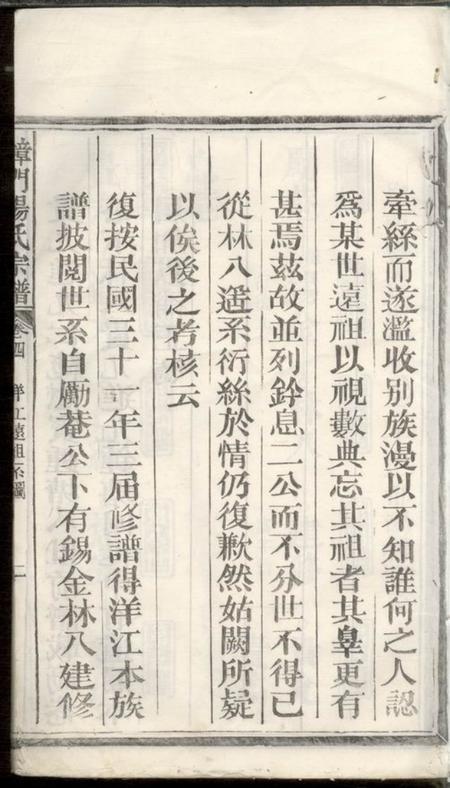 牽絲而遂濫收別族漫以不知誰何之人認
爲某世遠祖以視數典忘其祖者其辠更有
甚焉茲故並列鈐息二公而不分世不得已
從林八遥系衍絲於情仍復歉然姑闕所疑
以俟後之考核云
復按民國三十一年三届修譜得洋江本族
譜披閱世系自勵菴公下有錫金林八建修
漳門楊氏宗譜 卷四 洋江遠祖系圖 二